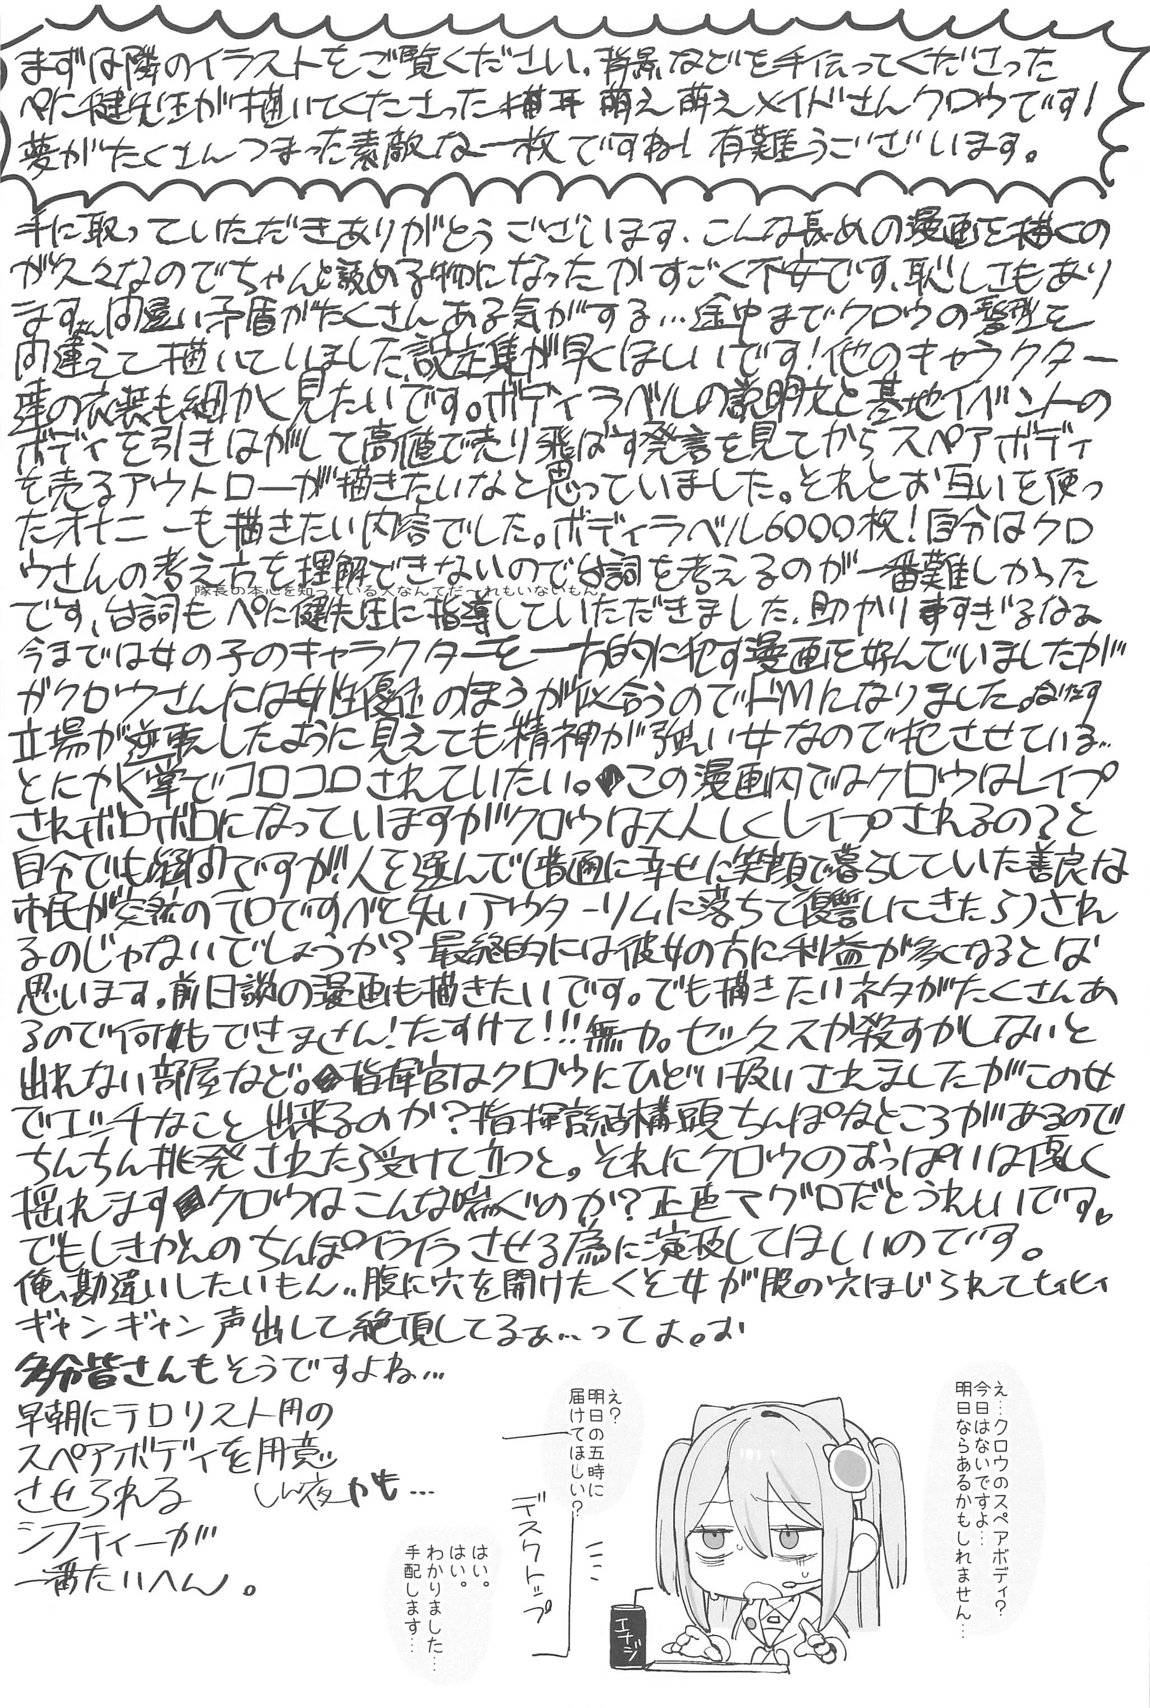 まずは隣のイラストをご覧ください。背景などを手伝ってくださった
ぺに健先生が描いてくださった猫耳 萌え萌えメイドさんクロウです!
夢がたくさんつまった素敵な一枚ですね! 有難うございます。
手に取っていただきありがとうございます、こんな長めの漫画を描くの
が久々なのでちゃんと読める物になったかすごく不安です、恥しくもあり
ます 間違い矛盾がたくさんある気がする…途中までクロウの髪型を
間違えて描いていました 設定集が早くほしいです!他のキャラクター
達の衣装も細かく見たいです。ボディラベルの説明文と基地イベントの
ボディを引きはがして高値で売り飛ばす発言を見てからスペアボディ
を売るアウトローが描きたいなと思っていました。それとお互いを使っ
たオナニーも描きたい内容でした。ボディラベル6000枚!自分はクロ
ウさんの考え方を理解できないので台詞を考えるのが一番難しかった
隊長の本心を知っている人なんてだ〜れもいないもん
です、台詞もぺに健先生に指導していただきました、助かりますすぎるなぁ
今までは女の子のキャラクターを一方的に犯す漫画を好んでいましたが
がクロウさんには女性優位のほうが似合うのでドMになりました。
立場が逆転したように見えても精神が強い女なので犯させている…
とにかく掌でコロコロされていたい。◆この漫画内ではクロウはレイプ
されボロボロになっていますがクロウは大人しくレイプされるの?と
自分でも疑問ですが!人を選んで(普通に幸せに笑顔で暮らしていた善良な
市民が突然のテロですべて失いアウターリムに落ちて復讐しにきたら)され
るのじゃないでしょうか?最終的には彼女の方に利益が多くなるとは
思います。前日談の漫画も描きたいです。でも描きたいネタがたくさんあ
るので何もできません!たすけて!!!無力。セックスか殺すかしないと
出れない部屋など。◆指揮官はクロウにひどい扱いされましたがこの女
でエッチなこと出来るのか?指揮官結構頭ちんぽなところがあるので
ちんちん挑発されたら受けて立つと。それにクロウのおっぱいは優しく
揺れます◆クロウはこんな喘ぐのか?正直マグロだとうれしいです。
でもしきかんのちんぽイライラさせる為に演技してほしいのです。
俺、勘違いしたいもん..腹に穴を開けたくそ女が股の穴ほじられてヒィヒィ
ギャンギャン声出して絶頂してるぁ…ってよ。お
多分皆さんもそうですよね…
早朝にテロリスト用の
スペアボディを用意
させられる
しん夜かも…
シフティーが
一番たいへん。
え…クロウのスペアボディ?
今日はないですよ…
明日ならあるかもしれません…
え?
明日の五時に
届けてほしい?
デスクトップ
はい。
はい。
わかりました…
手配します…
エナジ